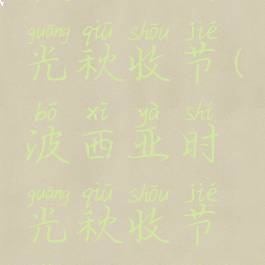 guāng qiū shōu jié
光秋收节(
bō xī yà shí
波西亚时
guāng qiū shōu jié
光秋收节